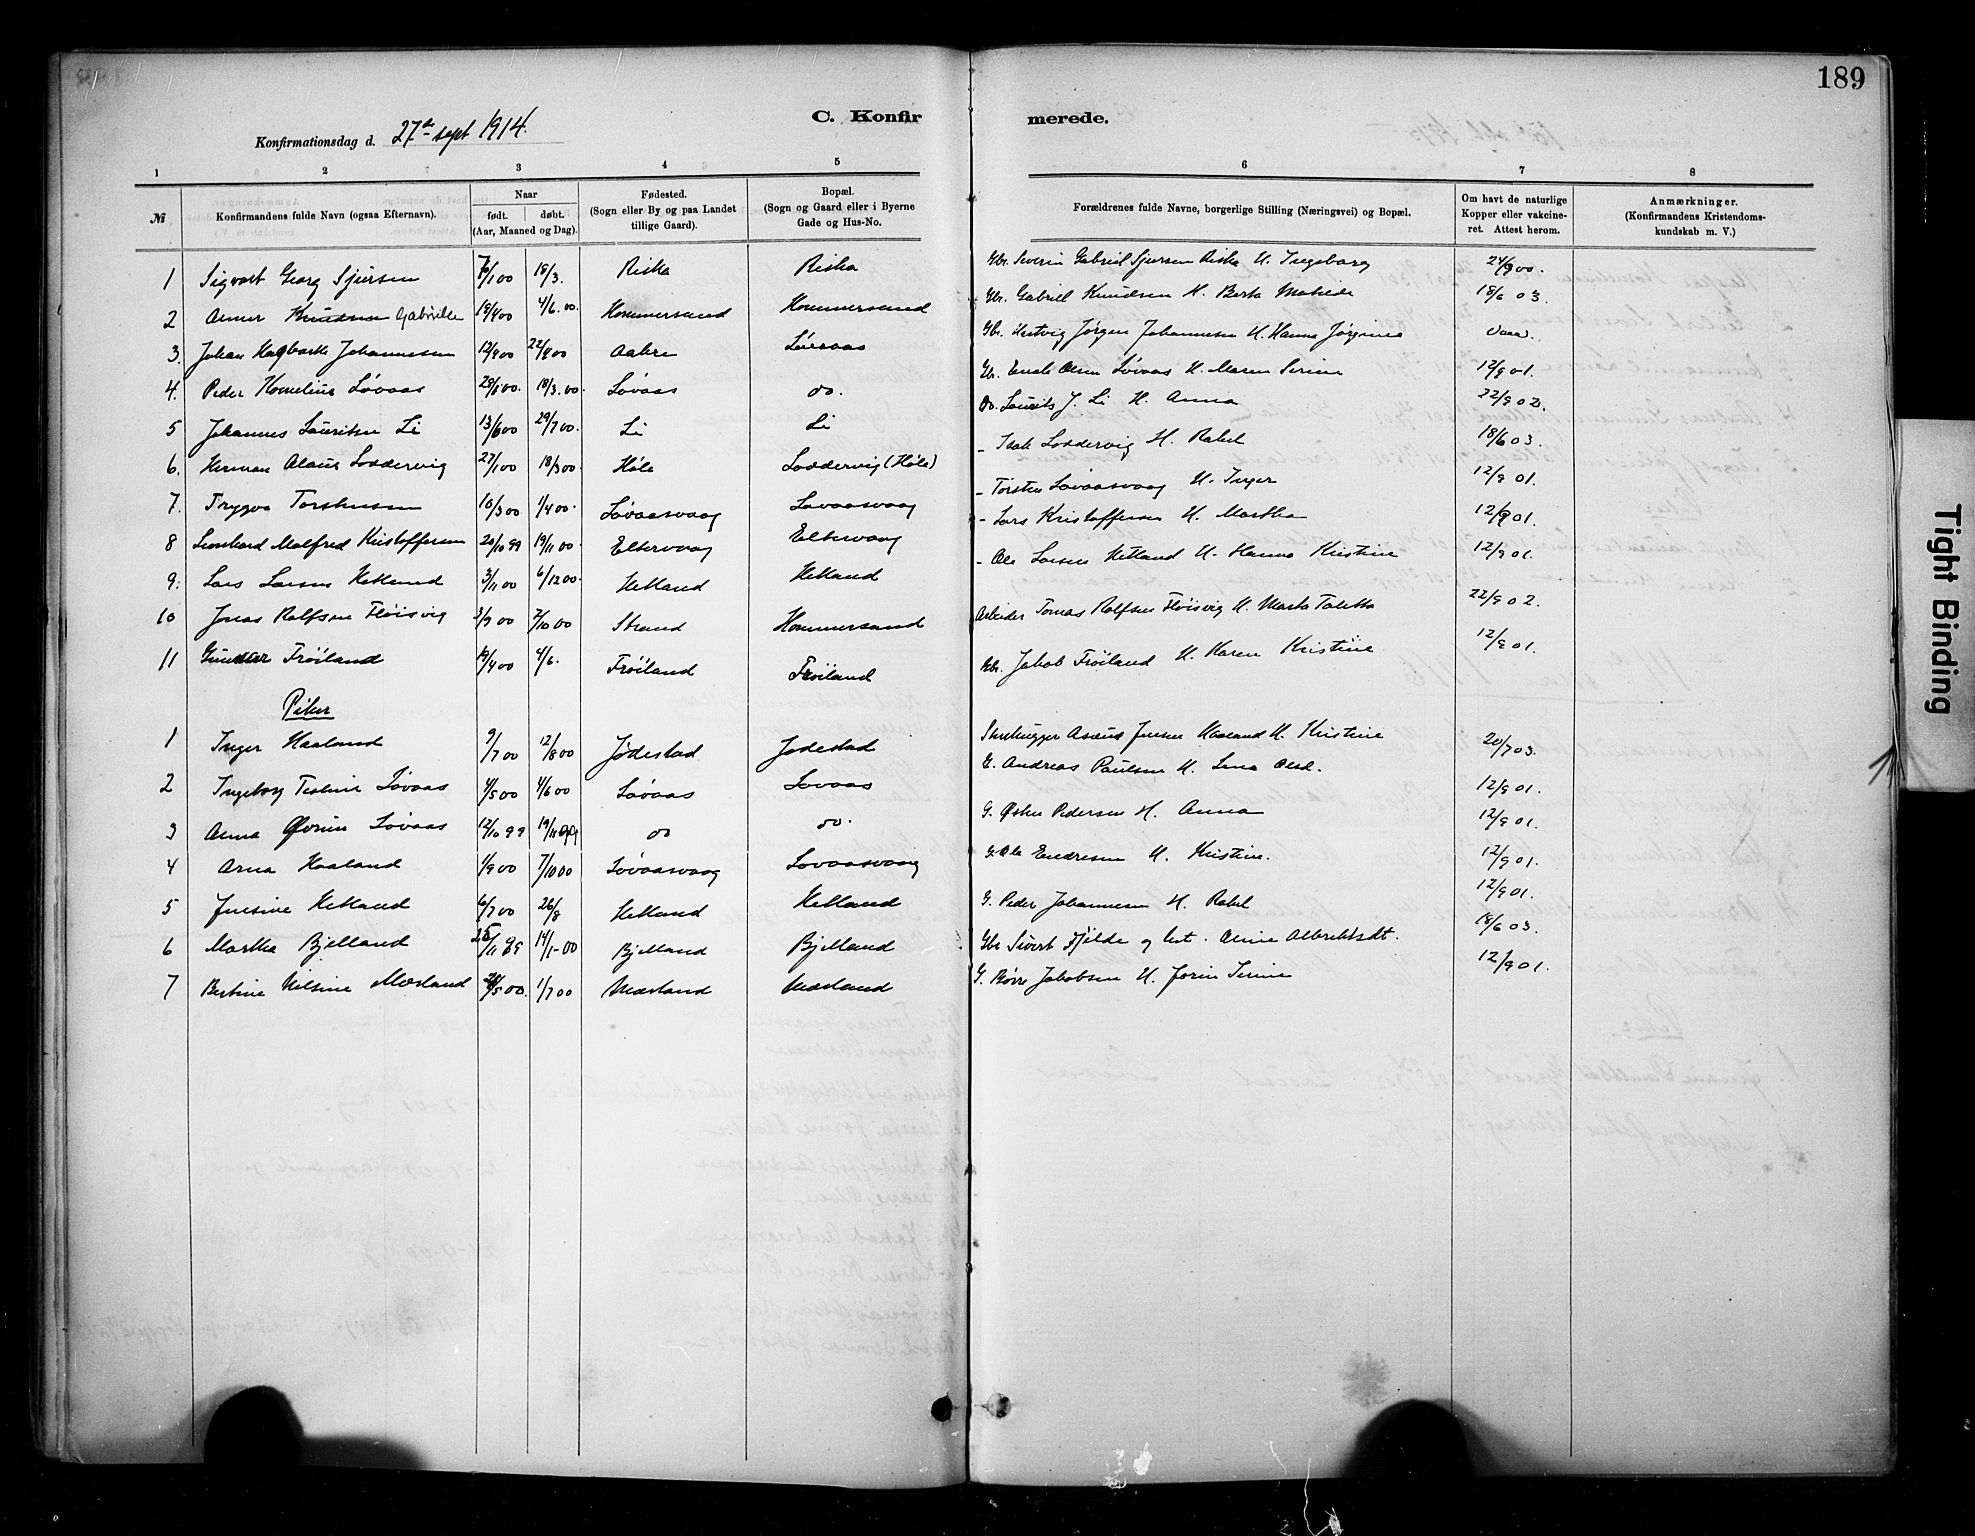 189
C. Konfirmerede.
Konfirmationsdag d. 27de sept 1914.
1 2 3 4 5 6 7 8
№ Konfirmandens fulde Navn (ogsaa Efternavn). Naar født. døbt. (Aar, Maaned og Dag). Fødested. (Sogn eller By og paa Landet tillige Gaard). Bopæl. (Sogn og Gaard eller i Byerne Gade og Hus-No. Forældrenes fulde Navne, borgerlige Stilling (Næringsvei) og Bopæl. Om havt de naturlige Kopper eller vakcineret. Attest herom. Anmærkninger. (Konfirmandens Kristendomskundskab m. V.)
1 Sigvart Georg Sjursen 18/3. Riska Riska Gbr. Severin Gabriel Sjursen Riska H. Ingeborg 24/9 00.
2 Knudsen Gabrielle 4/6. 00. Hommersand Hommersand Gbr. Gabriel Knudsen H. Berta Matilde 18/6 03.
3. Johan Hagbarth Johannesen 12/9 00 22/9 00 Løvaas Gbr. Hertvig Jørgen Johannesen H. Hanna Jørgine
4. Peder Kornelius Løvaas 28/1 00. 18/3. 00. Løvaas do. Gbr. Olsen Løvaas H. Maren Serine 12/9 01.
5 Johannes Lauritsen Li 13/6 00 29/7 00. Li Li Do. Laurits J. Li H. Anna 22/9 02.
6. Herman Olaus Loddervig 27/1 00 18/3 00. Høle Loddervig (Høle) - Isak Loddervig H. Rakel 18/6 03.
7. Trygve Torstensen 10/3 00 1/4 00. Løvaasvaag Løvaasvaag - Torsten Løvaasvaag H. Inger 12/9 01.
8 Leonhard Malfred Kristoffersen 20/10 99 19/11 00. Eltervaag Eltervaag - Lars Kristoffersen H. Martha 12/9 01.
9. Lars Larsen Hetland 3/11 00 6/12 00. Hetland Hetland - Ole Larsen Hetland H. Hanna Kristine 12/9 01.
10 Jonas Rolfsen Fløisvig 3/9 00 7/10 00 Strand Hommersand Arbeider Tomas Rolfsen Fløisvig H. Marta Taletta 22/9 02.
11 Frøiland 19/4 00 4/6. Frøiland Frøiland Gbr. Jakob Frøiland H. Karen Kristine 12/9 01.
Piker
1 Inger Haaland 9/7 00 12/8 00 Jødestad Jødestad Stenhugger Jensen Haaland H. Kristine 20/7 03.
2 Ingeborg Tesline Løvaas 4/5 00 4/6 00 Løvaas Løvaas G. Andreas Paulsen H. Lena Olsd. 12/9 01.
3 Anna Løvaas 12/10 99 19/11 99 do do. G. Østen Pedersen H. Anna 12/9 01.
4 Arna Haaland 1/9 00 7/10 00 Løvaasvaag Løvaasvaag G. Ole Endresen H. Kristine. 12/9 01.
5 Jensine Hetland 6/7 00 26/8 Hetland Hetland G. Peder Johannesen H. Rakel 12/9 01.
6 Martha Bjelland 25/11 99 14/1-00 Bjelland Bjelland Gbr Sivert Fjelde og Albrektsdt. 18/6 03.
7 Bertine Nilsine Mæsland /5 00. 1/7 00 Mæsland Mæsland G. Børre Jakobsen H. Jorin Serine 12/9 01.
Tight Binding